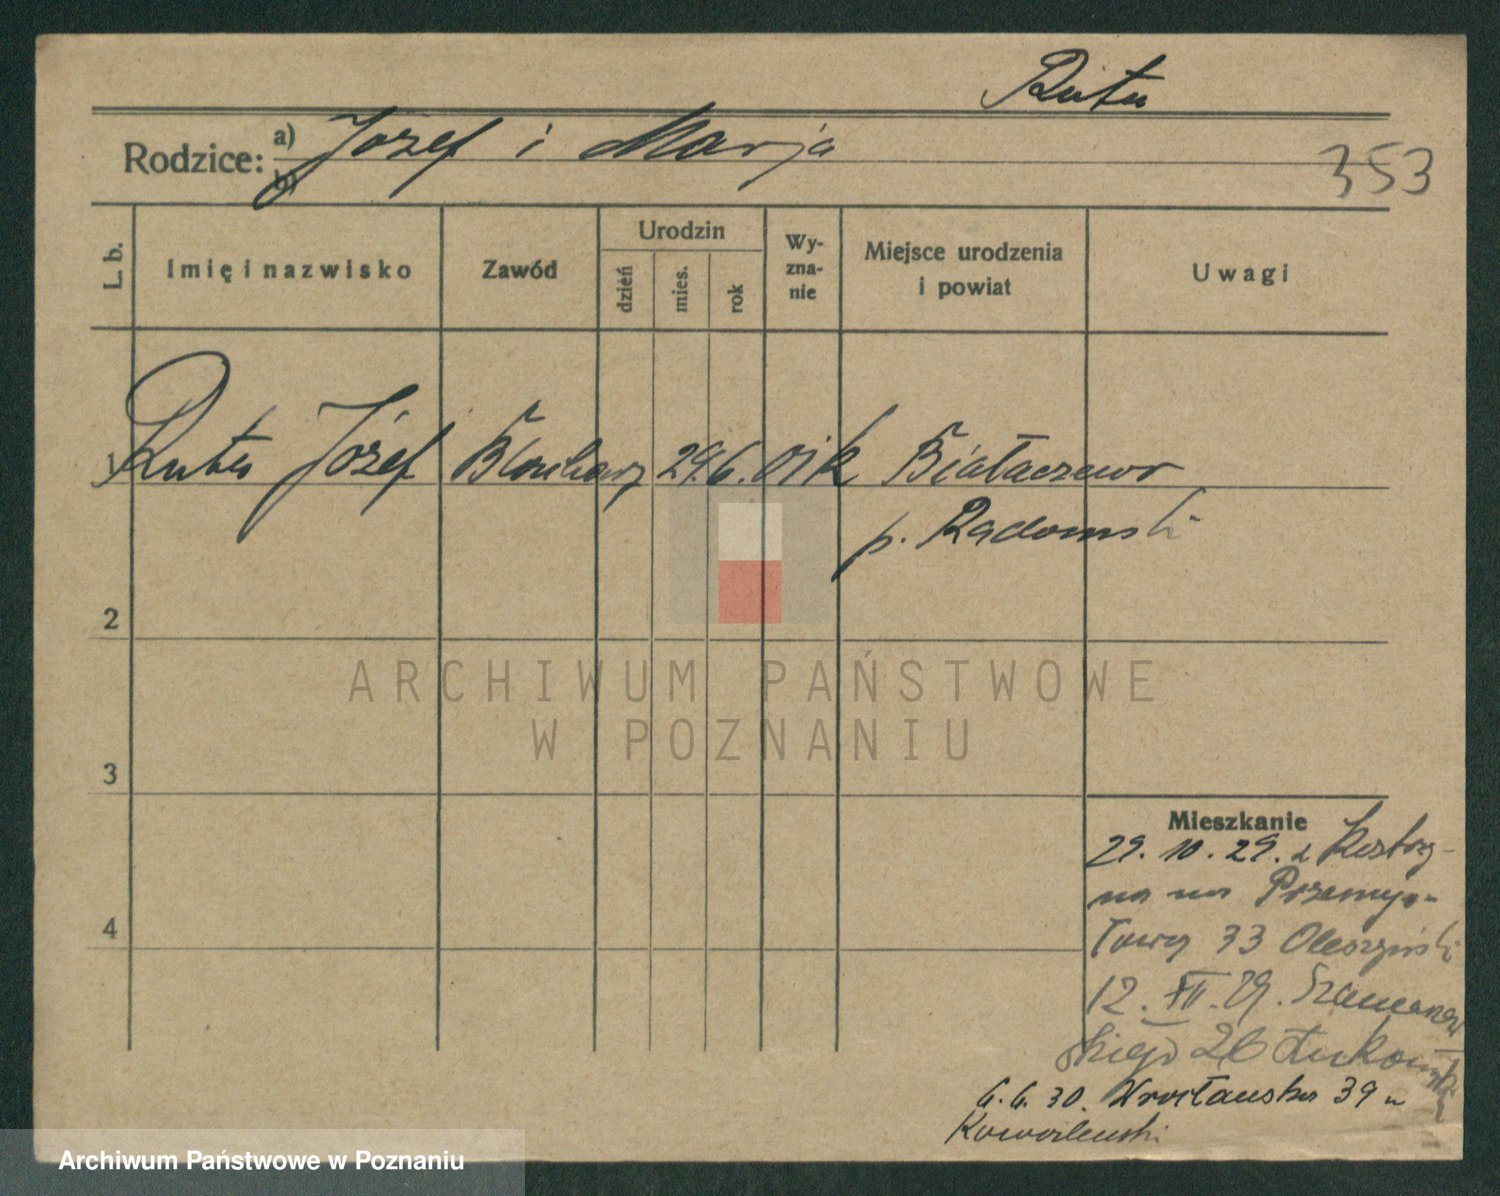 Ruta
Rodzice: a) Józef i Marja
b)
353
L. b.
Imię i nazwisko
Zawód
Urodzin
dzień
mies.
rok
Wy-
zna-
nie
Miejsce urodzenia
i powiat
Uwagi
1 Ruta Józef 29.6.01 k Białaczew
p. Radomski
2
ARCHIWUM PAŃSTWOWE
W POZNANIU
3
Mieszkanie
29. 10. 29. z Kostrzy-
na na Przemys-
łowa 33
4
12. XII. 29.
skiego 26
6. 6. 30. Wrocławska 39 u
Archiwum Państwowe w Poznaniu